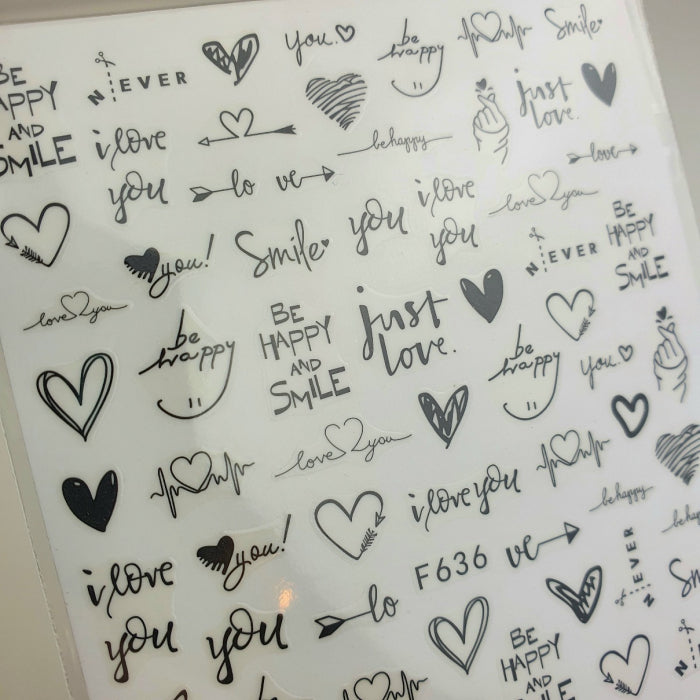 BE
HAPPY
AND
SMILE
N EVER
you.
be
happy
Smile
i love
you
just
love.
be happy
lo ve
love
you!
Smile
you
i love
you
love you
N EVER
BE
HAPPY
AND
SMILE
love you
be
happy
BE
HAPPY
AND
SMILE
just
love.
be
happy
you.
love you
i love you
be happy
i love
you
you!
you
lo
F636
ve
N EVER
be happy
BE
HAPPY
AND
SMILE